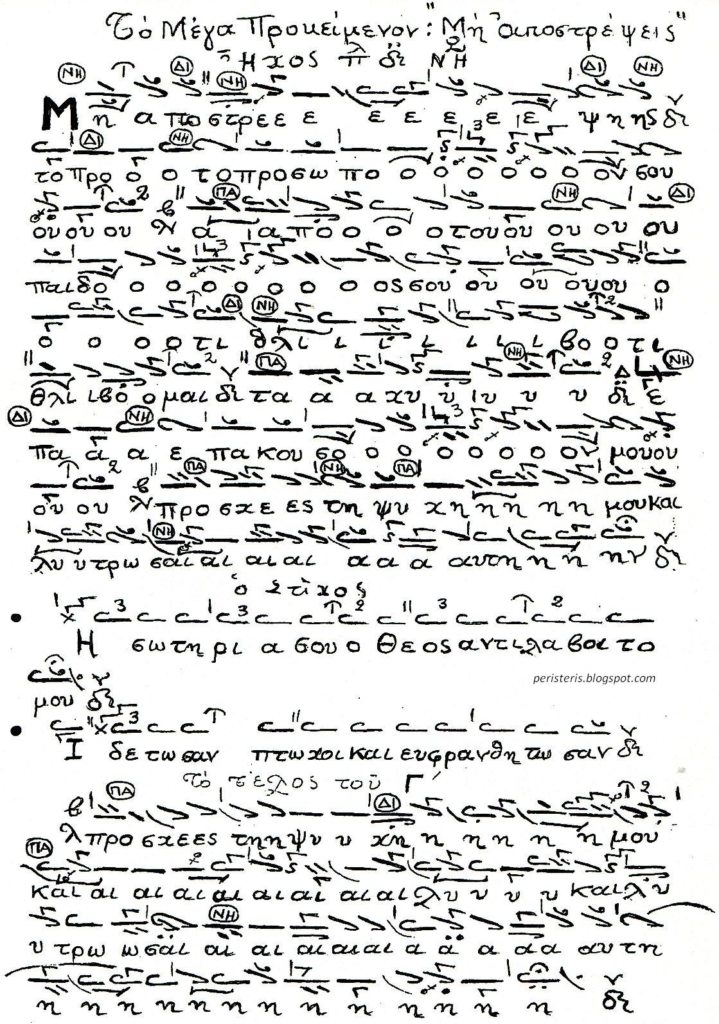 Τό Μέγα Προκείμενον: "Μή ἀποστρέψεις"
Ἦχος πλ δ̈ ΝΗ
Μ η α πο στρε ε ε ε ε ε ε ε ψη ης
το προ ο ο το προσω πο ο ο ο ο ο ο ου σου
ου ου ου α ια πο ο ο ο ο του ου ου ου ου
παι δο ο ο ο ο ο ο ο ος σου ου ου ου ου ο
ο ο ο ο τι θλι ι ι ι ι ι ι βο ο τι
θλι ι βο ο μαι τα α α χυ υ ιυ υ υ ε
πα α α ε πα κου σο ο ο ο ο ο ο ο μου ου
ου ου προ σχε ες τη ψυ χη η η η η μου και
λυ υ τρω σαι αι αι αι α α α αυτη η η ην
ὁ Στίχος
Η σωτη ρι α σου ο Θε ος αντι λα βοι το
peristeris.blogspot.com
μου
Ι δε τω σαν πτωχοι και ευφρανθη τω σαν
Τό τέλος τοῦ Γ΄
προ σχε ες τη η ψυ υ χη η η η η η η μου
και αι αι αι αι αι αι αι αι λυ υ υ υ υ και λυ
υ τρω ω σαι αι αι αι αι αι α α α α α αυ τη
η η η η η η η η η η η η